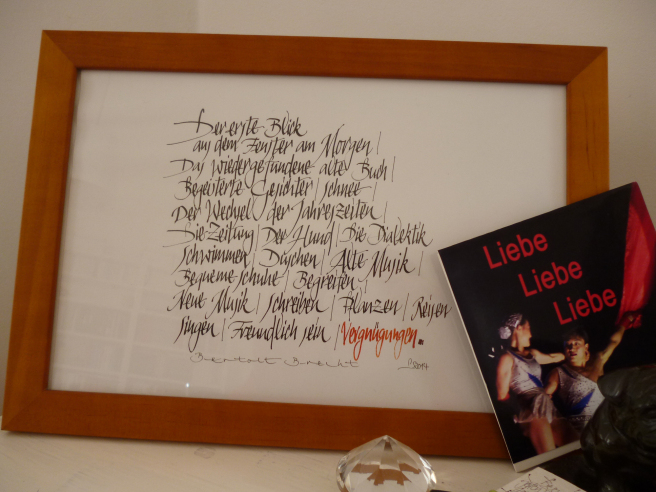 Der erste Blick
aus dem Fenster am Morgen |
Das wiedergefundene alte Buch |
Begeisterte Gesichter | Schnee |
Der Wechsel der Jahreszeiten |
Die Zeitung | Der Hund | Die Dialektik
Schwimmen | Duschen | Alte Musik |
Bequeme Schuhe | Begreifen |
Neue Musik | Schreiben | Pflanzen | Reisen
Singen | Freundlich sein | Vergnügungen.
Bertolt Brecht
Liebe
Liebe
Liebe